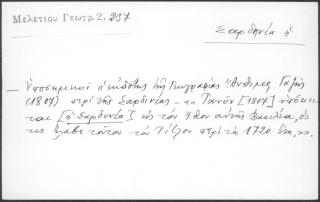 Μελετίου Γεωγρ. 2. 237
Σαρδηνία ἡ
— Ὑποσημειοῖ ὁ ἐκδότης τῆς Γεωγραφίας Ἄνθιμος Γαζῆς
(1807) περὶ τῆς Σαρδηνίας — τὰ Τανῦν [1807] ὑπόκει-
ται [ἡ Σαρδηνία] εἰς τὸν ἴδιον αὐτῆς βασιλέα, ὅσ
τις ἔλαβε τοῦτον τὸν Τίτλον περὶ τὰ 1720 ἔτη. »»